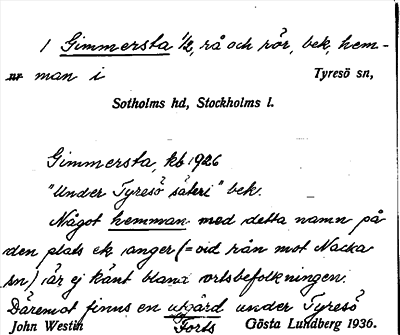 1 Gimmersta ½, rå och rör, bek, hem-
man i Tyresö sn,
Sotholms hd, Stockholms l.
Gimmersta, kb 1926
"Under Tyresö säteri" bek.
Något hemman med detta namn på
den plats ek anger (= vid rån mot Nacka
sn) är ej känt bland ortsbefolkningen.
Däremot finns en utgård under Tyresö
John Westin Forts Gösta Lundberg 1936.